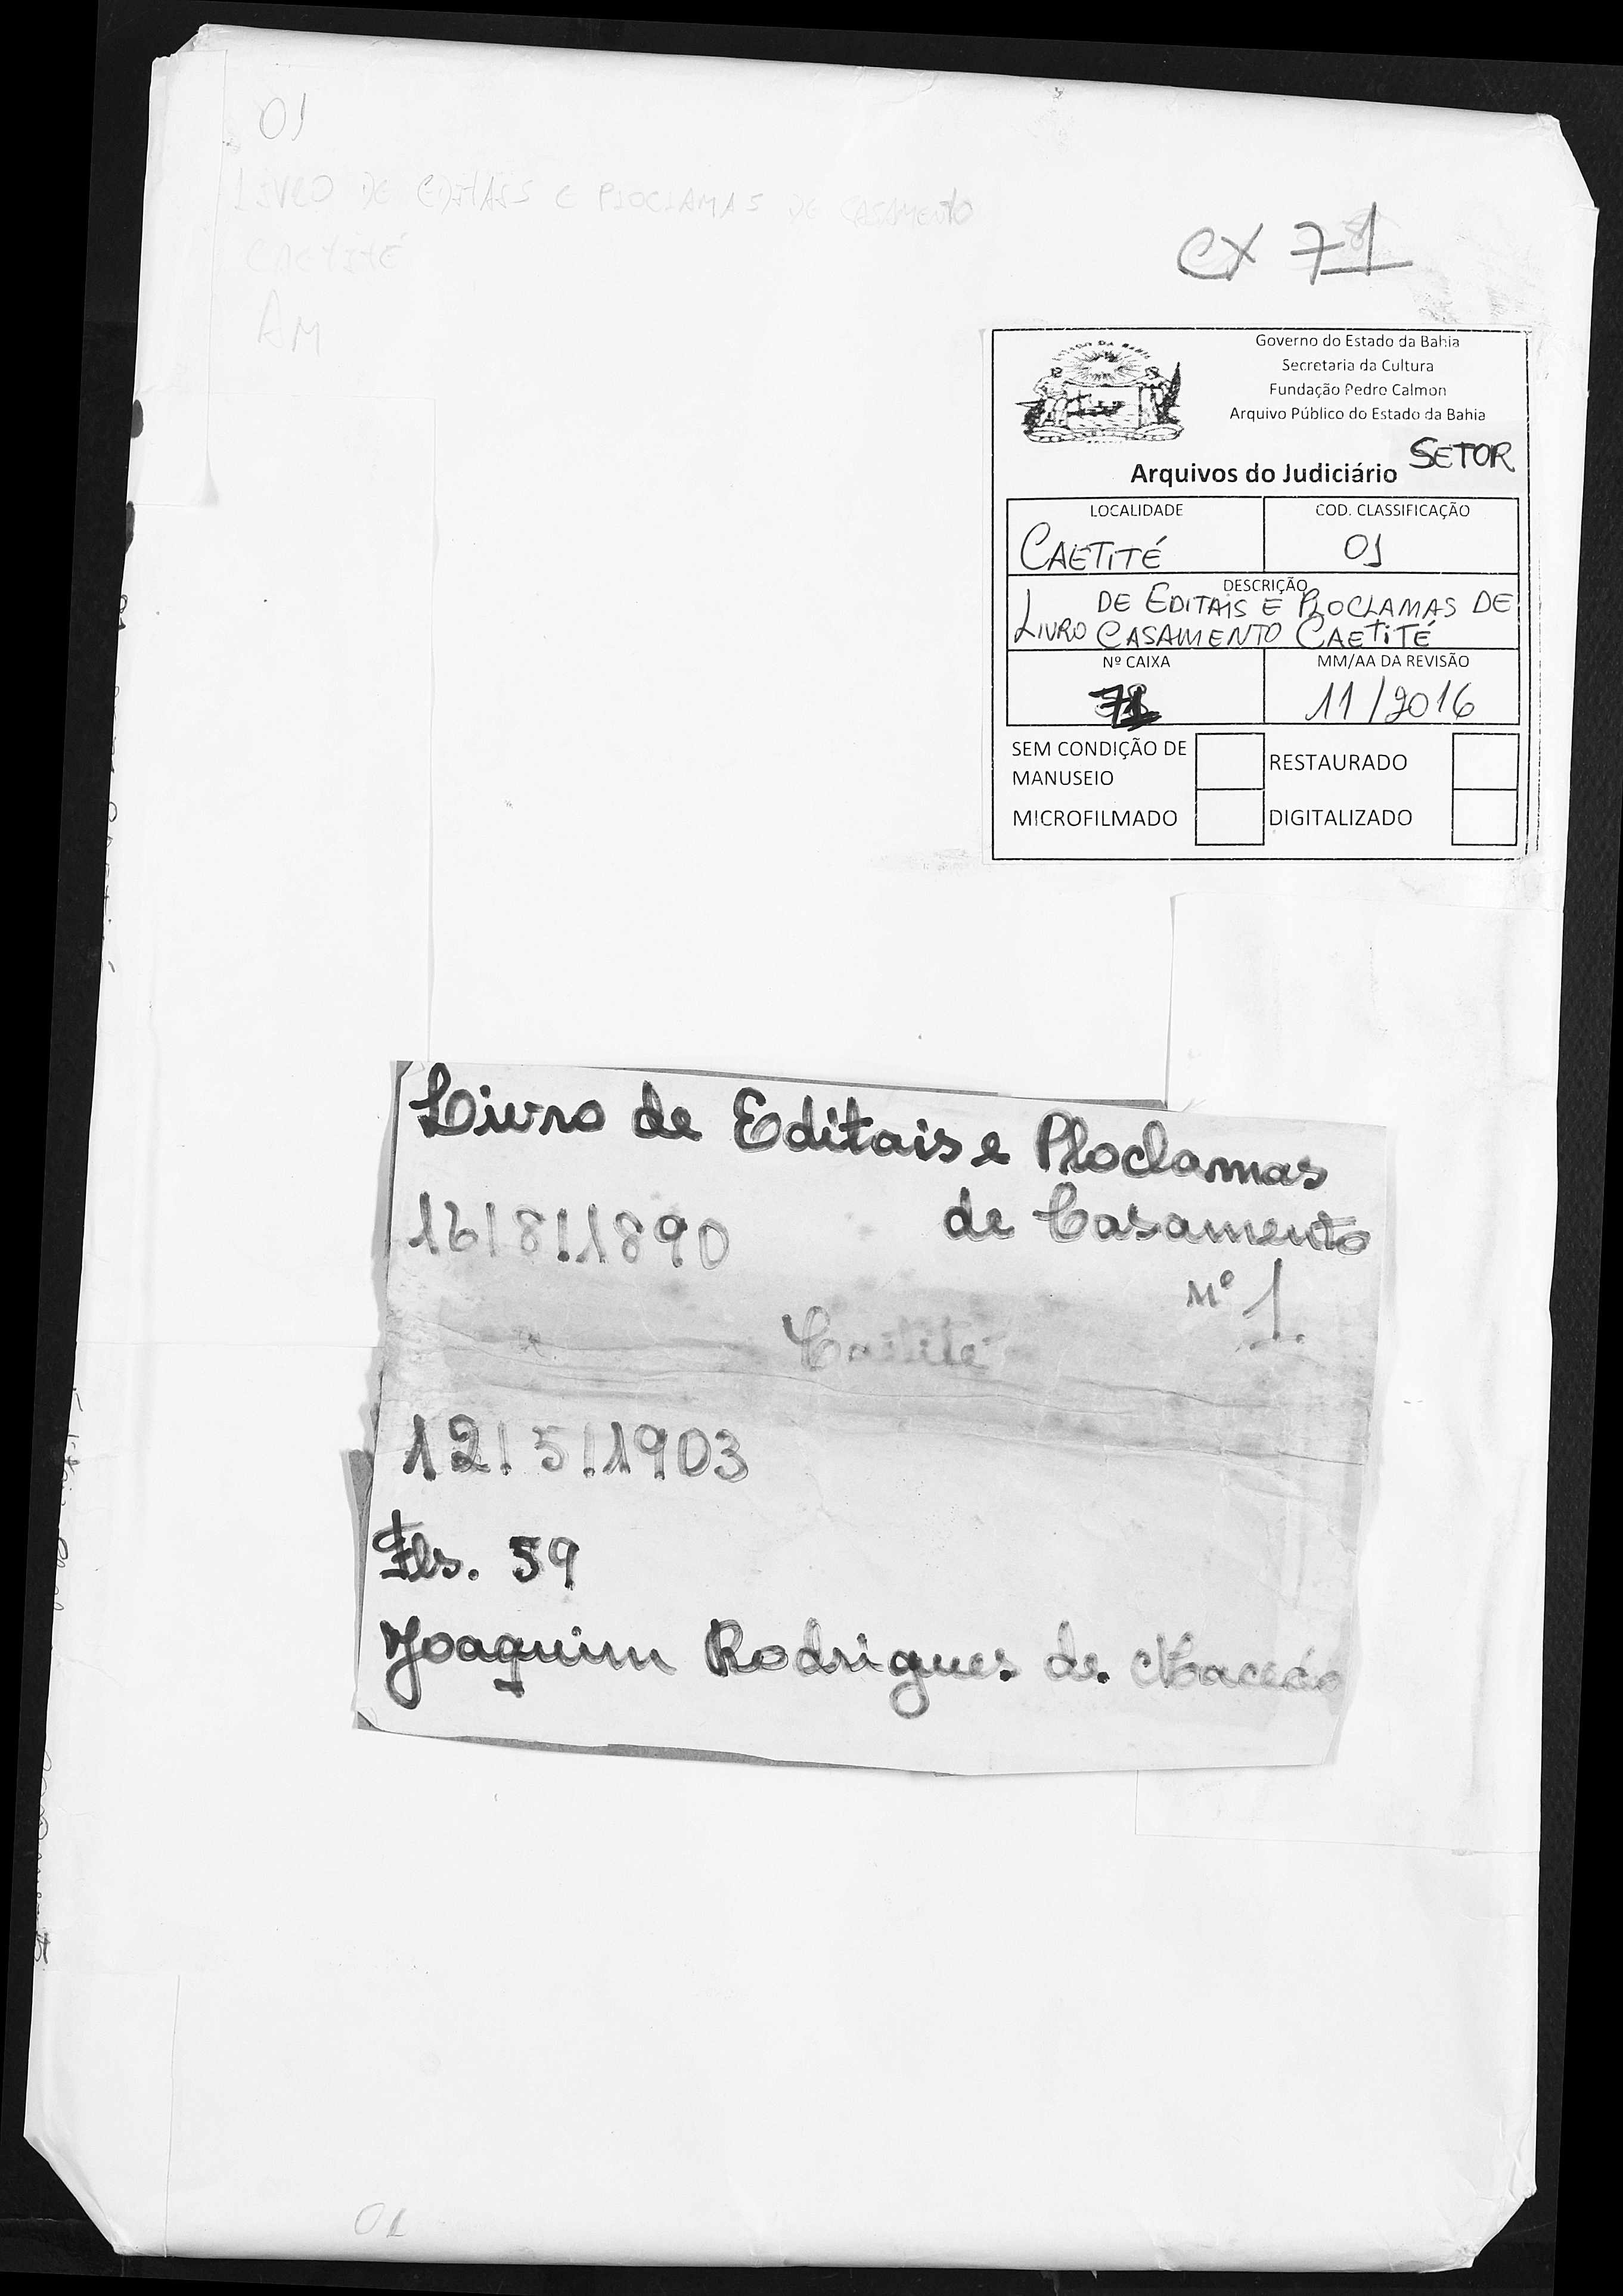 01
LIVRO DE EDITAIS E PLOCLAMAS DE CASAMENTO
CAETITÉ
AM
CX 71
Governo do Estado da Bahia
Secretaria da Cultura
Fundação Pedro Calmon
Arquivo Público do Estado da Bahia
SETOR
Arquivos do Judiciário
LOCALIDADE COD. CLASSIFICAÇÃO
CAETITÉ 01
DESCRIÇÃO
DE EDITAIS E PLOCLAMAS DE
LIVRO CASAMENTO CAETITÉ
Nº CAIXA MM/AA DA REVISÃO
71 11/2016
SEM CONDIÇÃO DE MANUSEIO RESTAURADO
MICROFILMADO DIGITALIZADO
Livro de Editais e Ploclamas
16/8/1890 de Casamento
Nº 1.
Caetité
12/5/1903
Fls. 59
Joaquim Rodrigues de Macedo
01